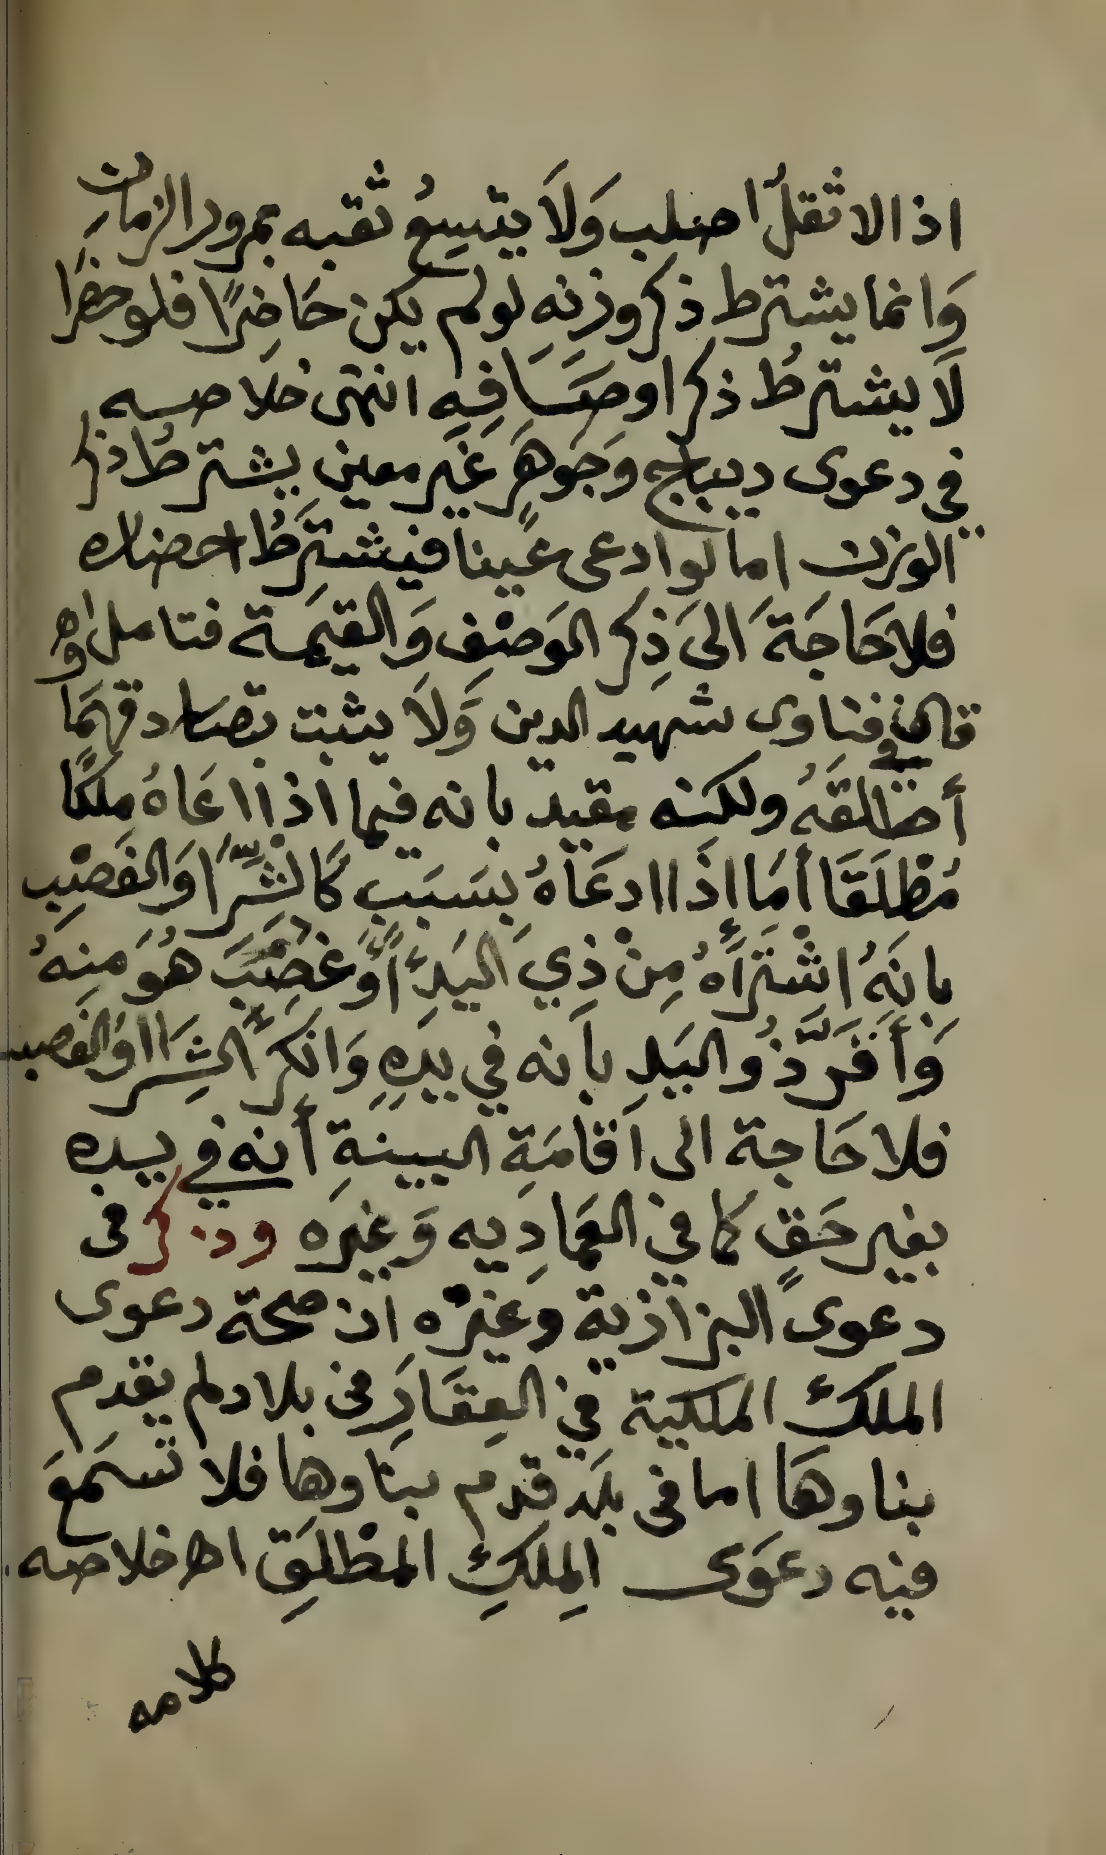 اذ الاثقلُ اصلب وَلَا يتسِعُ ثقبه بمرور الزمان
وَانما يشترط ذكر وزنهِ لو لم يكن حَاضِرًا فلو حضرًا
لَا يشترطُ ذكر اوصَافِهِ انتهى خلاصه
في دعوى ديباج وَجَوهَرٍ غَير معين يشترطُ ذكر
الوزن اما لو ادعى عَينا فيشتَرطُ احضاره
فلا حَاجَةَ الىَ ذِكر الوَصْفِ وَالقيَمة فتامل اهـ
قال في فتاوى شهيد الدين وَلَا يثبت بتصادقهمَا
أطلقَهُ ولكنه مقيد بانه فيما اذا اعَاهُ مِلكًا
مُطْلَقَا أمَا إذَا ادعَاهُ بسَبَبٍ كَالشّرَا وَالغَصْبِ
بانَهُ اشْتَرَاهُ مِنْ ذِي اليَدِ أَوْ غَصْبَ هُوَ مِنهُ
وَأقَرَّ ذُو اليَدِ بانه في يَدِهِ وَانكَرَ الشِرَا اوالغصب
فلا حَاجة الى اقامَةِ البينةِ أنه في يده
بغير حَقٍ كما في العمَادِيه وَغيرَه وذكر في
دعوى البزازية وغيْره ان صحة دعوى
الملك الملكية في العِقَارَ في بلاد لم يقدم
بناوهَا اما في بلَد قدم بناوها فلا تسَمعَ
فيه دعوَى المِلكِ المطْلَقِ اهـ خلاصه
كلامه